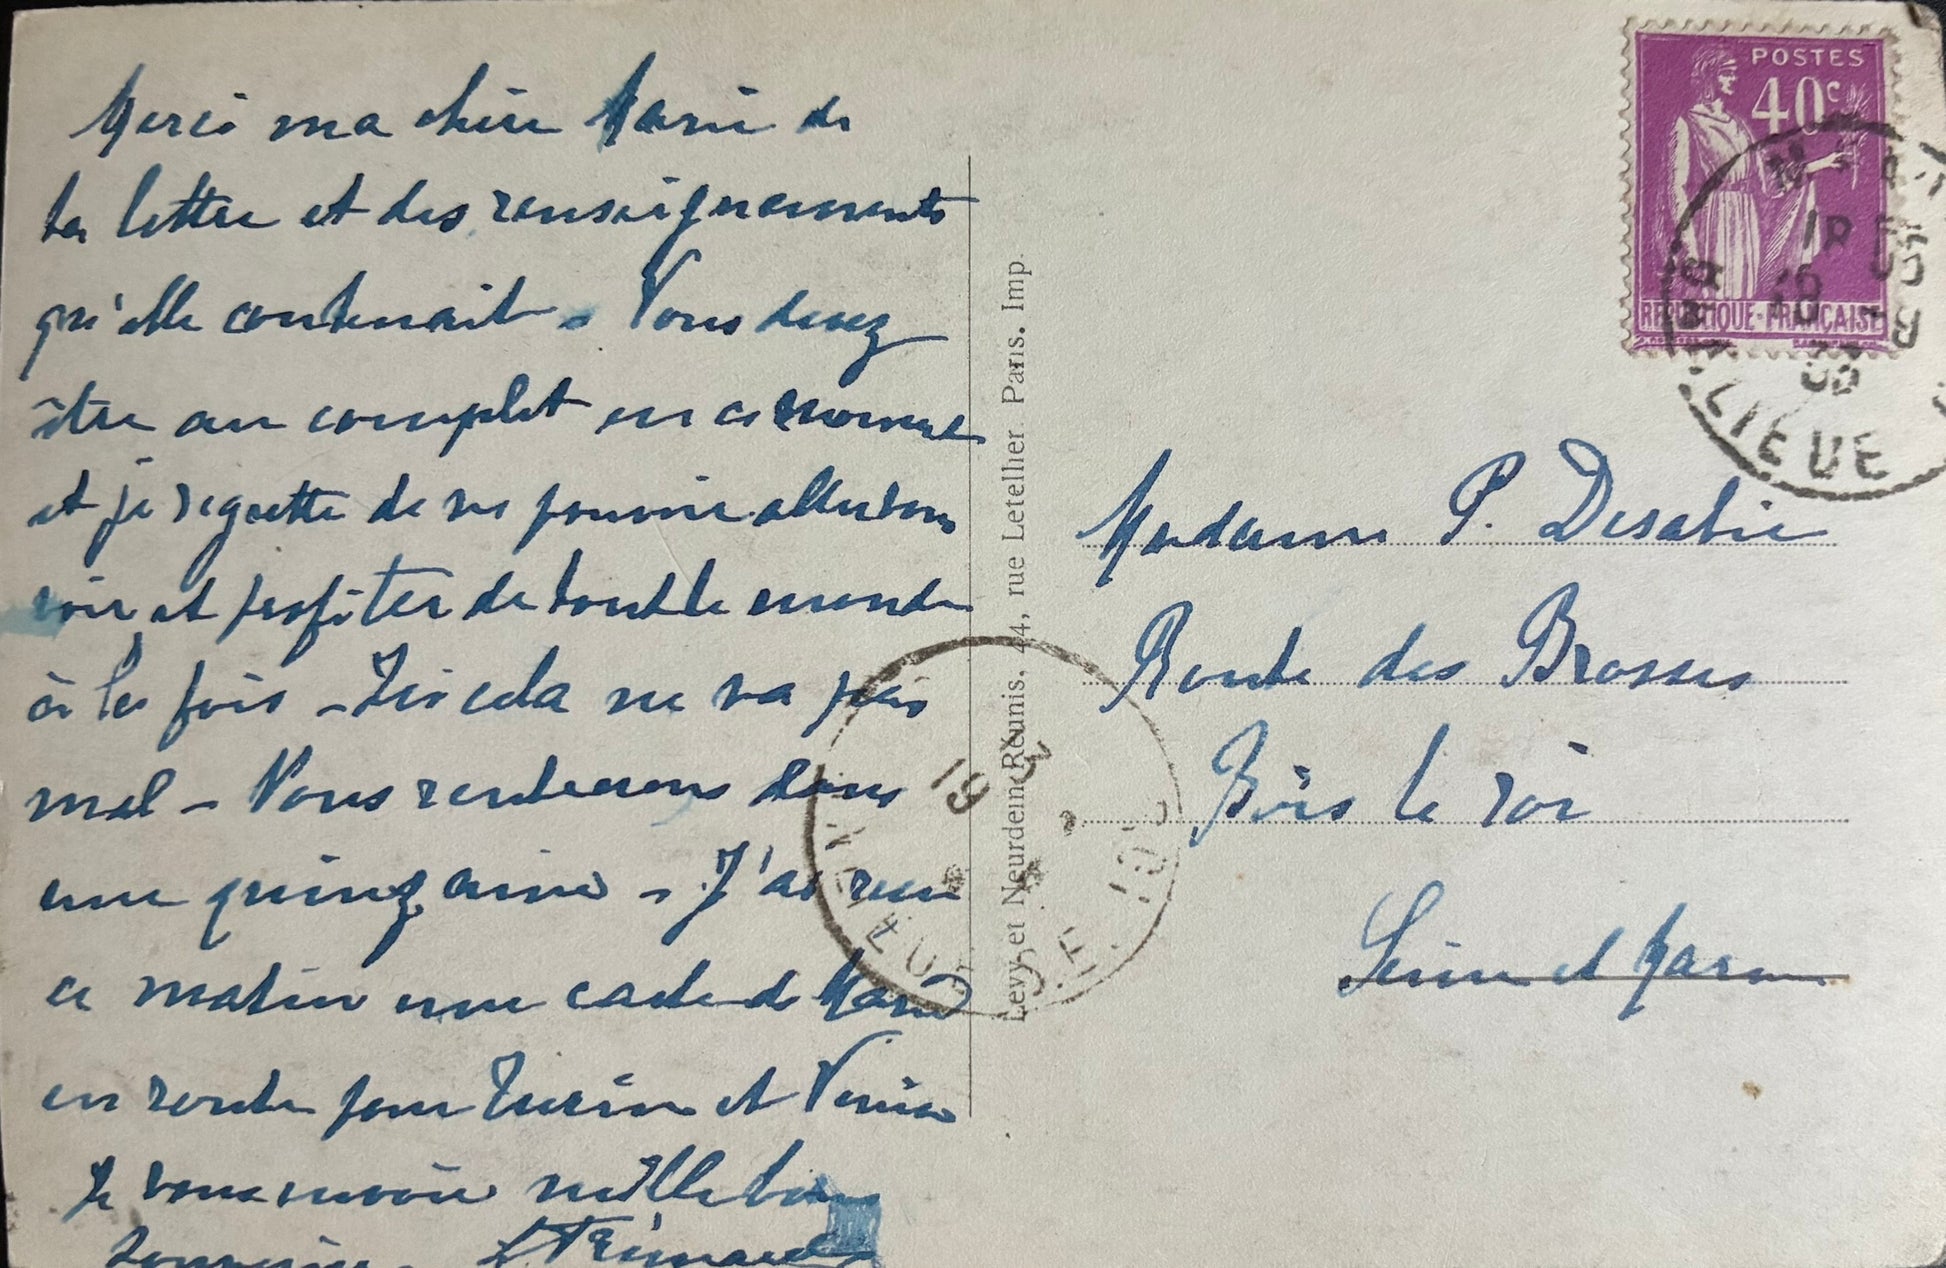 Merci ma chère Marie de
ta lettre et des renseignements
qu'elle contenait - Vous devez
être au complet en ce moment
et je regrette de ne pouvoir aller vous
voir et profiter de tout le monde
à la fois - Ici cela ne va pas
mal - Nous rentrerons dans
une quinzaine - J'ai reçu
ce matin une carte de Marie
en route pour Turin et Venise
Je vous envoie mille bons
souvenirs.
Levy et Neurdein Réunis, 44, rue Letellier Paris. Imp.
POSTES
40c
REPUBLIQUE-FRANÇAISE
18
LIEUE
19
Madame P. Desabie
Route des Brosses
Bois le roi
Seine et Marne